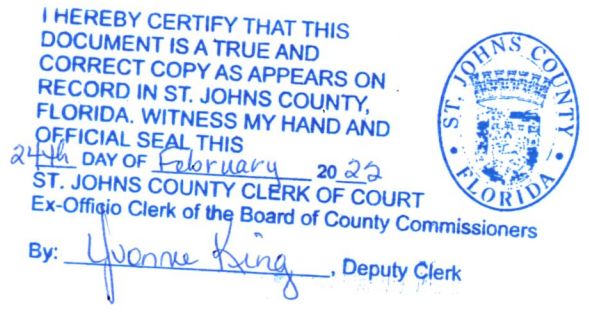 I HEREBY CERTIFY THAT THIS
DOCUMENT IS A TRUE AND
CORRECT COPY AS APPEARS ON
RECORD IN ST. JOHNS COUNTY,
FLORIDA. WITNESS MY HAND AND
OFFICIAL SEAL THIS
24th DAY OF February 20 22
ST. JOHNS COUNTY CLERK OF COURT
Ex-Officio Clerk of the Board of County Commissioners
By: Yvonne King, Deputy Clerk
ST. JOHNS COUNTY
FLORIDA